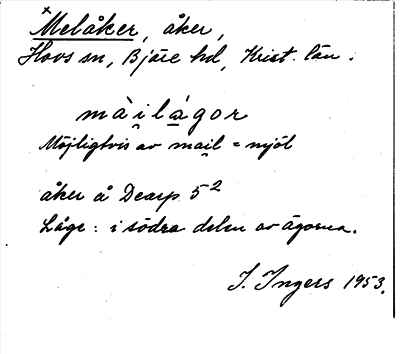 × Melåker, åker,
Hovs sn, Bjäre hd, Krist. län.
mài̯lágor
Möjligtvis av mai̯l = mjöl
åker å Dearp 5²
Läge: i södra delen av ägorna.
I. Ingers 1953.